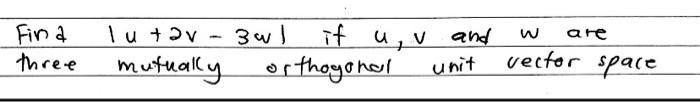 Find |u + 2v - 3w| if u, v and w are
three mutually orthogonal unit vector space